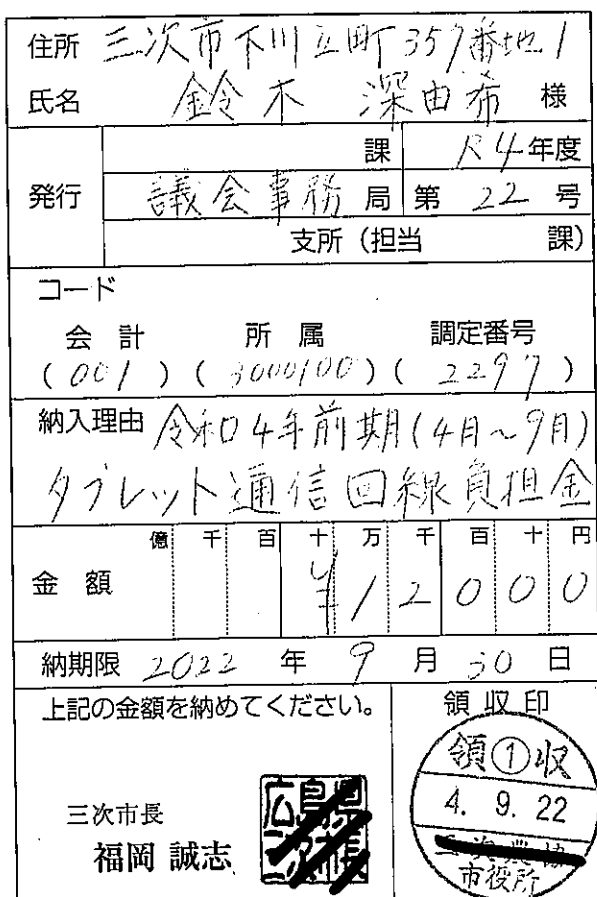 住所 三次市下川立町357番地1
氏名 鈴木 深由希 様
課 R4年度
発行 議会事務局 第 22 号
支所(担当 課)
コード
会計 所属 調定番号
(001)(3000100)(2297)
納入理由 令和4年前期(4月~9月)
タブレット通信回線負担金
億 千 百 十 万 千 百 十 円
金額 ¥12000
納期限 2022 年 9 月 30 日
上記の金額を納めてください。 領収印
領①収
4. 9. 22
三次農協
市役所
三次市長
福岡 誠志